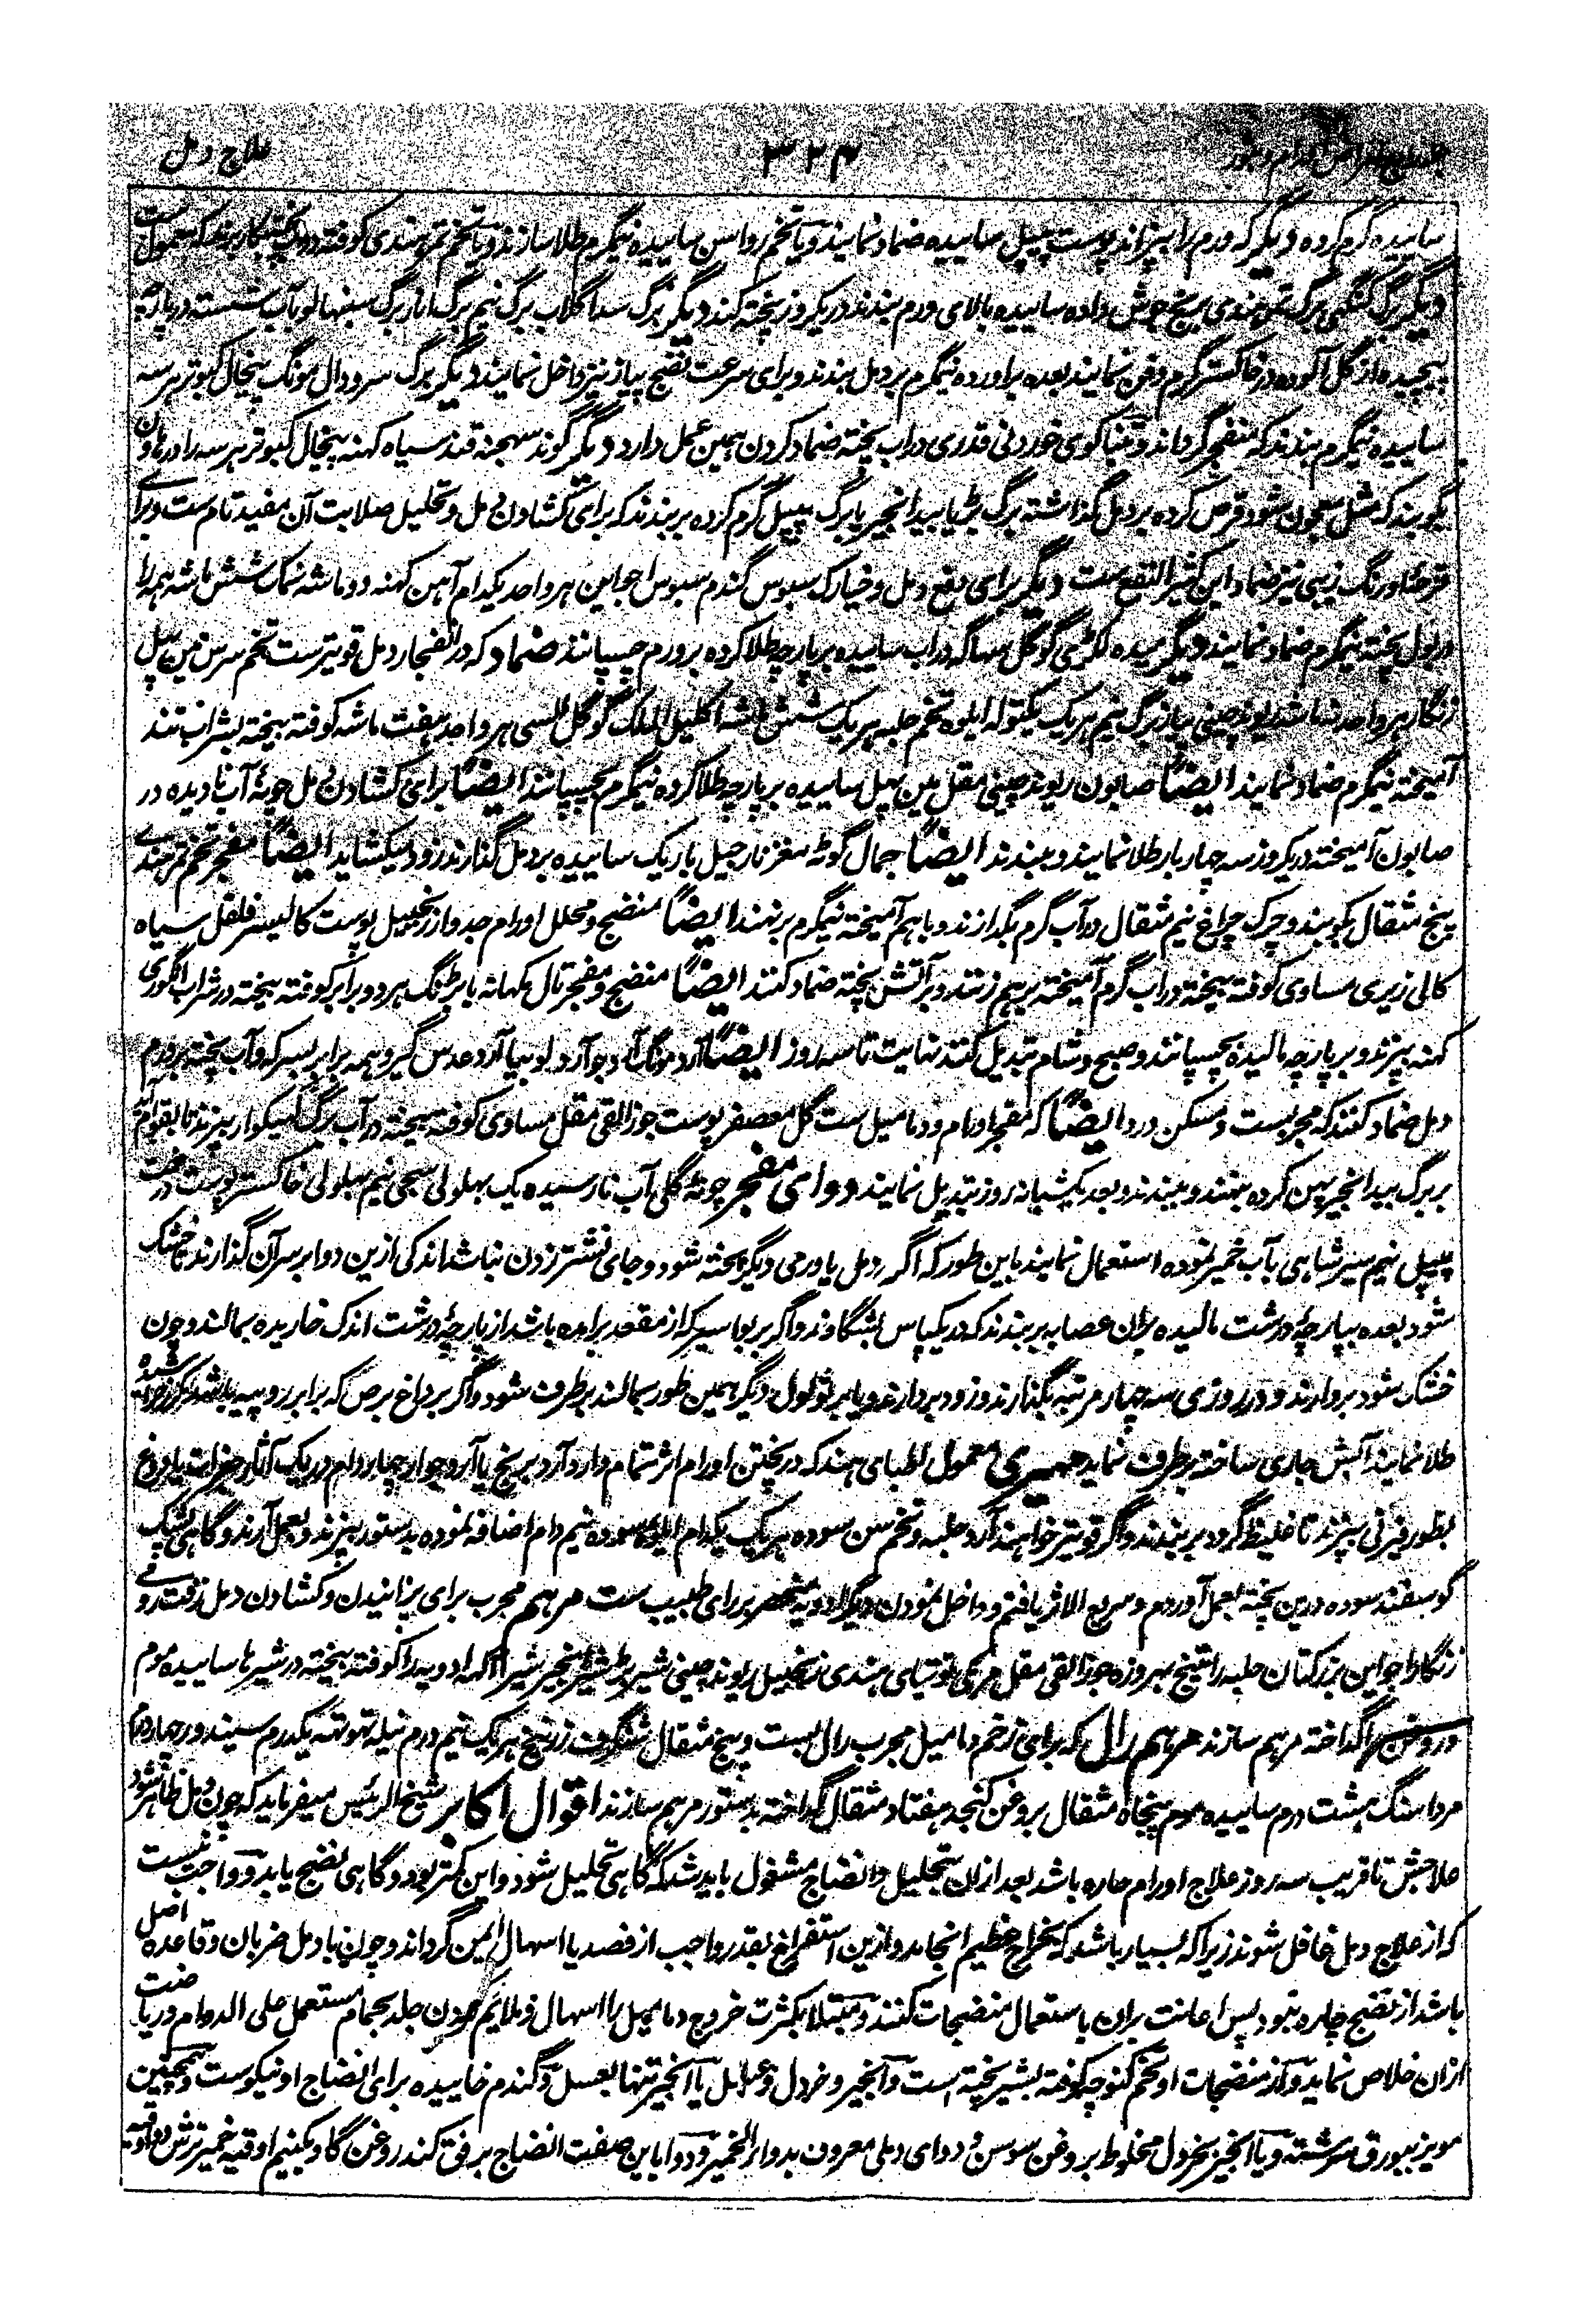 علاج دمل
۳۲۴
ساییده گرم کرده دیگر که ورم را بپزاند پوست پیپل ساییده ضماد نمایند و یا تخم رواسن ساییده نیمگرم طلا سازند و یا تخم تمر هندی کوفته در آب پخته بکار برند که معمول ست
دیگر برگ کنگهی برگ تمر هندی برنج جوش داده ساییده بالای ورم بندند در یکروز پخته کند دیگر برگ سدا گلاب برگ نیم برگ انار برگ سنبهالو بآب شسته در پارچه
پیچیده از گل آلوده در خاکستر گرم دفن نمایند بعده برآورده نیمگرم بر دمل بندند و برای سرعت نضج پیاز نیز داخل نمایند دیگر برگ سرو دال مونگ پیخال کبوتر هر سه
ساییده نیمگرم بندند که منفجر گرداند و تنباکوی خوردنی قدری در آب پخته ضماد کردن همین عمل دارد دیگر گوند سهجنه قند سیاه کهنه پیخال کبوتر هر سه را در هاون
بکوبند که مثل معجون شود قرص کرده بر دمل گذاشته برگ بڑ یا بید انجیر یا برگ پیپل گرم کرده بر بندند که برای کشادن دمل و تحلیل صلابت آن مفید تام ست و برای
قرحۀ اورنگ زیبی نیز ضماد این کثیر النفع ست دیگر برای دفع دمل و خیارک سبوس گندم سبوس اجواین هر واحد یکدام آهن کهنه دو ماشه نمک شش ماشه همه را
در بول پخته نیمگرم ضماد نمایند دیگر میده لکڑی گوگل سهاگه در آب ساییده بر پارچه طلا کرده بر ورم چسپانند ضماد که در انفجار دمل قویترست تخم سرس مین پهل
زنگار هر واحد سه ماشه ریوند چینی پیاز برگ نیم هر یک یکتوله ایلوه تخم حلبه هر یک شش ماشه اکلیل الملک گوگل السی هر واحد هفت ماشه کوفته بیخته بشراب تند
آمیخته نیمگرم ضماد نمایند ایضاً صابون ریوند چینی مقل مین پهل ساییده بر پارچه طلا کرده نیمگرم بچسپانند ایضاً برای کشادن دمل چونۀ آب نادیده در
صابون آمیخته در یکروز سه چهار بار طلا نمایند و ببندند ایضاً جمال گوٹه مغز نارجیل باریک ساییده بر دمل گذارند زود میکشاید ایضاً مفجر تخم تمر هندی
پنج مثقال بکوبند و چرک چراغ نیم مثقال در آب گرم بگدازند و باهم آمیخته نیمگرم بر نهند ایضاً منضج و محلل اورام جدوار زنجبیل پوست کالیسر فلفل سیاه
کالی زیری مساوی کوفته بیخته در آب گرم آمیخته برهم زنند و بر آتش پخته ضماد کنند ایضاً منضج و مفجر تال مکهانه بارتنگ هر دو برابر کوفته بیخته در شراب انگوری
کهنه بپزند و بر پارچه مالیده بچسپانند و صبح و شام تبدیل کنند نهایت تا سه روز ایضاً آرد مونگ آرد جو آرد لوبیا آرد عدس گیرو همه برابر بسرکه و آب پخته بر ورم
دمل ضماد کنند که مجربست و مسکن درد ایضاً که مفجر اورام و دمامیل ست گل معصفر پوست جوز القی مقل مساوی کوفته بیخته در آب برگ گهیکوار بپزند تا بقوام آید
بر برگ بید انجیر پهن کرده بنهند و ببندند و بعد یکشبانه روز تبدیل نمایند دوای مفجر چونۀ گلی آب نارسیده یک بهلولی سجی نیم بهلولی خاکستر پوست درخت
پیپل نیم سیر شاهی بآب خمیر نموده استعمال نمایند باین طور که اگر دمل یا ورمی دیگر پخته شود و جای نشتر زدن نباشد اندکی ازین دوا بر سر آن گذارند تا خشک
شود بعده بپارچۀ درشت مالیده بران عصابه بر بندند که در یکپاس بشگافد و اگر بر بواسیر که از مقعد برآمده باشد از پارچۀ درشت اندک خاریده بمالند و چون
خشک شود بردارند و در روزی سه چهار مرتبه بگذارند و زود بردارند و یا بر ثولول دیگر همین طور بمالند برطرف شود و اگر بر داغ برص که برابر روپیه باشد
طلا نمایند آبش جاری ساخته برطرف نماید هیری معمول اطبای هند که در پختن اورام اثر تمام دارد آرد برنج یا آرد جوار چهار دام در یک آثار جغرات یا دوغ
بطور فیرنی بپزند تا غلیظ گردد بر بندند و اگر قویتر خواهند آرد حلبه و تخم سن سوده هر یک یکدام ایلوه سوده نیم دام اضافه نموده بدستور بپزند و بعمل آرند و گاهی پشک
گوسفند سوده درین پخته بعمل آوردم و سریع الاثر یافتم و داخل نمودن دیگر ادویه منحصر بر رای طبیب ست مرهم مجرب برای پزانیدن و کشادن دمل زفت رومی
زنگار اجواین بزر کتان حلبه راتینج بهروزه جوز القی مقل مرمکی توتیای هندی زنجبیل ریوند چینی شیر بڑ شیر انجیر شیر آکه ادویه را کوفته بیخته در شیرها ساییده موم
در روغن گداخته مرهم سازند مرهم رال که برای زخم دمامیل مجرب رال بست و پنج مثقال شنگرف زرنیخ هر یک نیم درم نیله تهوتهه یکدرم سیندور چهار درم
مرداسنگ هشت درم ساییده موم پنجاه مثقال بروغن کنجد هفتاد مثقال گداخته بدستور مرهم سازند اقوال اکابر شیخ الرئیس میفرماید که چون دمل ظاهر شود
علاجش تا قریب سه روز علاج اورام حاره باشد بعد ازان بتحلیل و انضاج مشغول باید شد که گاهی تحلیل شود و این کمتر بود و گاهی نضج یابد و واجب نیست
که از علاج دمل غافل شوند زیرا که بسیار باشد که بخراج عظیم انجامد و ازین استفراغ بقدر واجب از فصد یا اسهال ایمن گرداند و چون با دمل ضربان و قاعده اصل
باشد از نضج چاره نبود پس اعانت بران باستعمال منضجات کنند و مبتلا بکثرت خروج دمامیل را اسهال و ملایم کردن جلد بحمام مستعمل علی الدوام و ریاضت
ازان خلاص نماید و از منضجات او تخم کنوچه کوفته بشیر پخته است و انجیر و خردل و عسل یا انجیر تنها بعسل و گندم خاییده برای انضاج او نیکوست و همچنین
مویز ببورق سرشته و یا انجیر بخردل مخلوط بروغن سوسن و دوای دملی معروف بدواء الخمیر و دوا باین صفت انضاج برفق کند روغن گاو یکنیم اوقیه خمیر ترش دو اوقیه